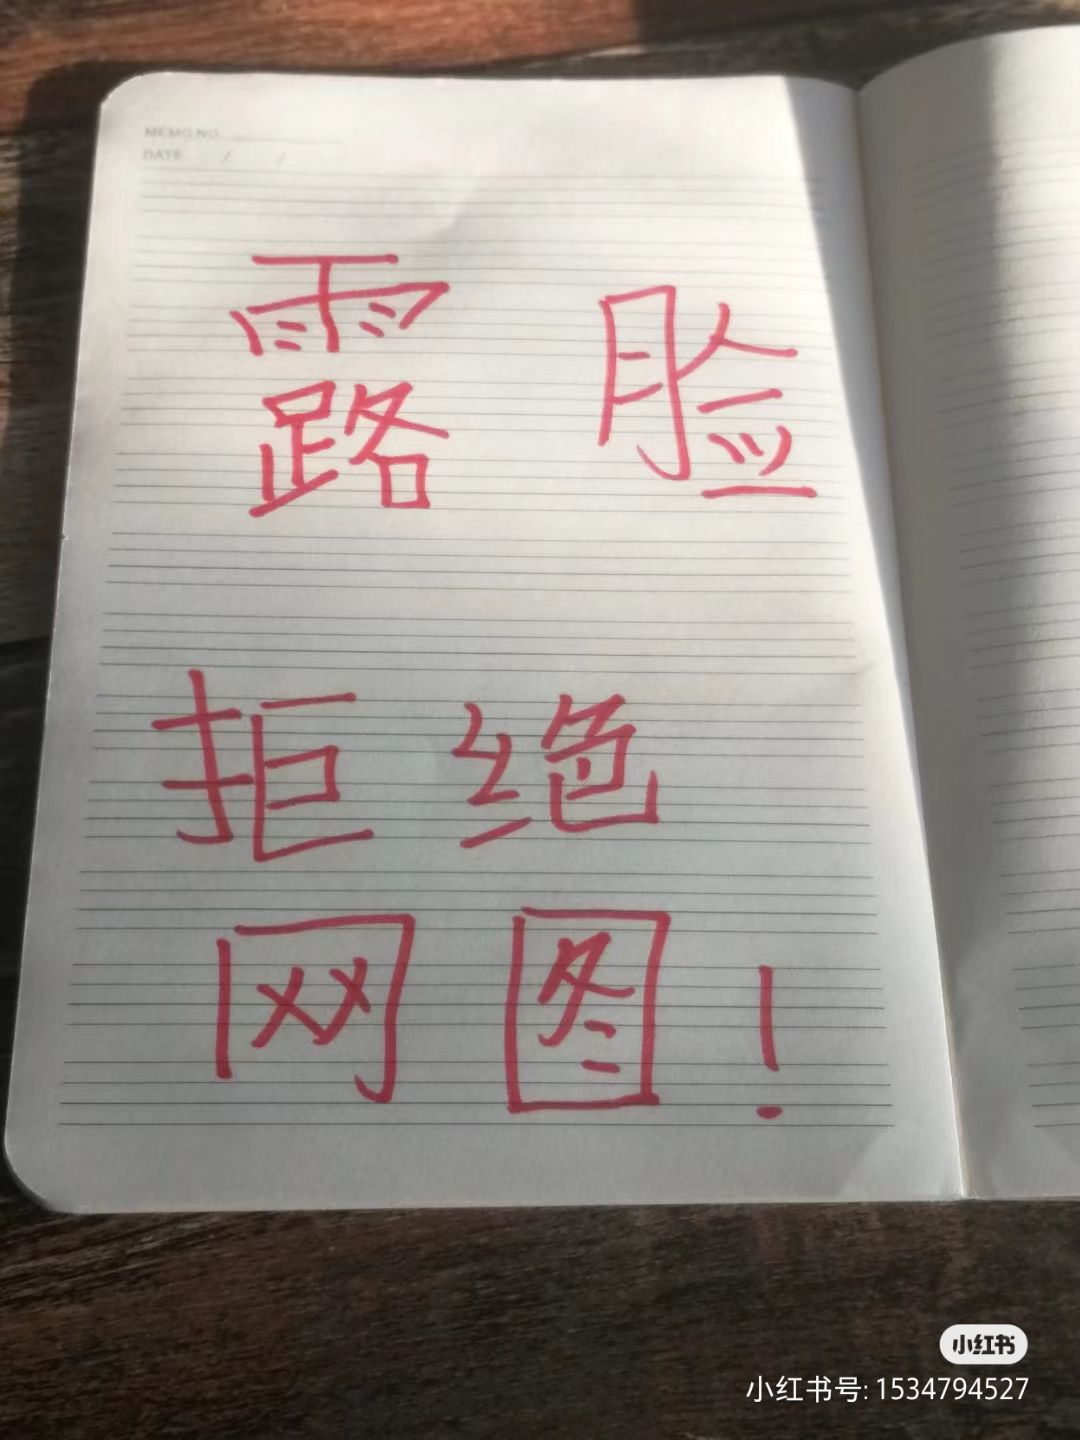 MEMO NO.
DATE / /
露脸
拒绝
网图!
小红书
小红书号: 1534794527